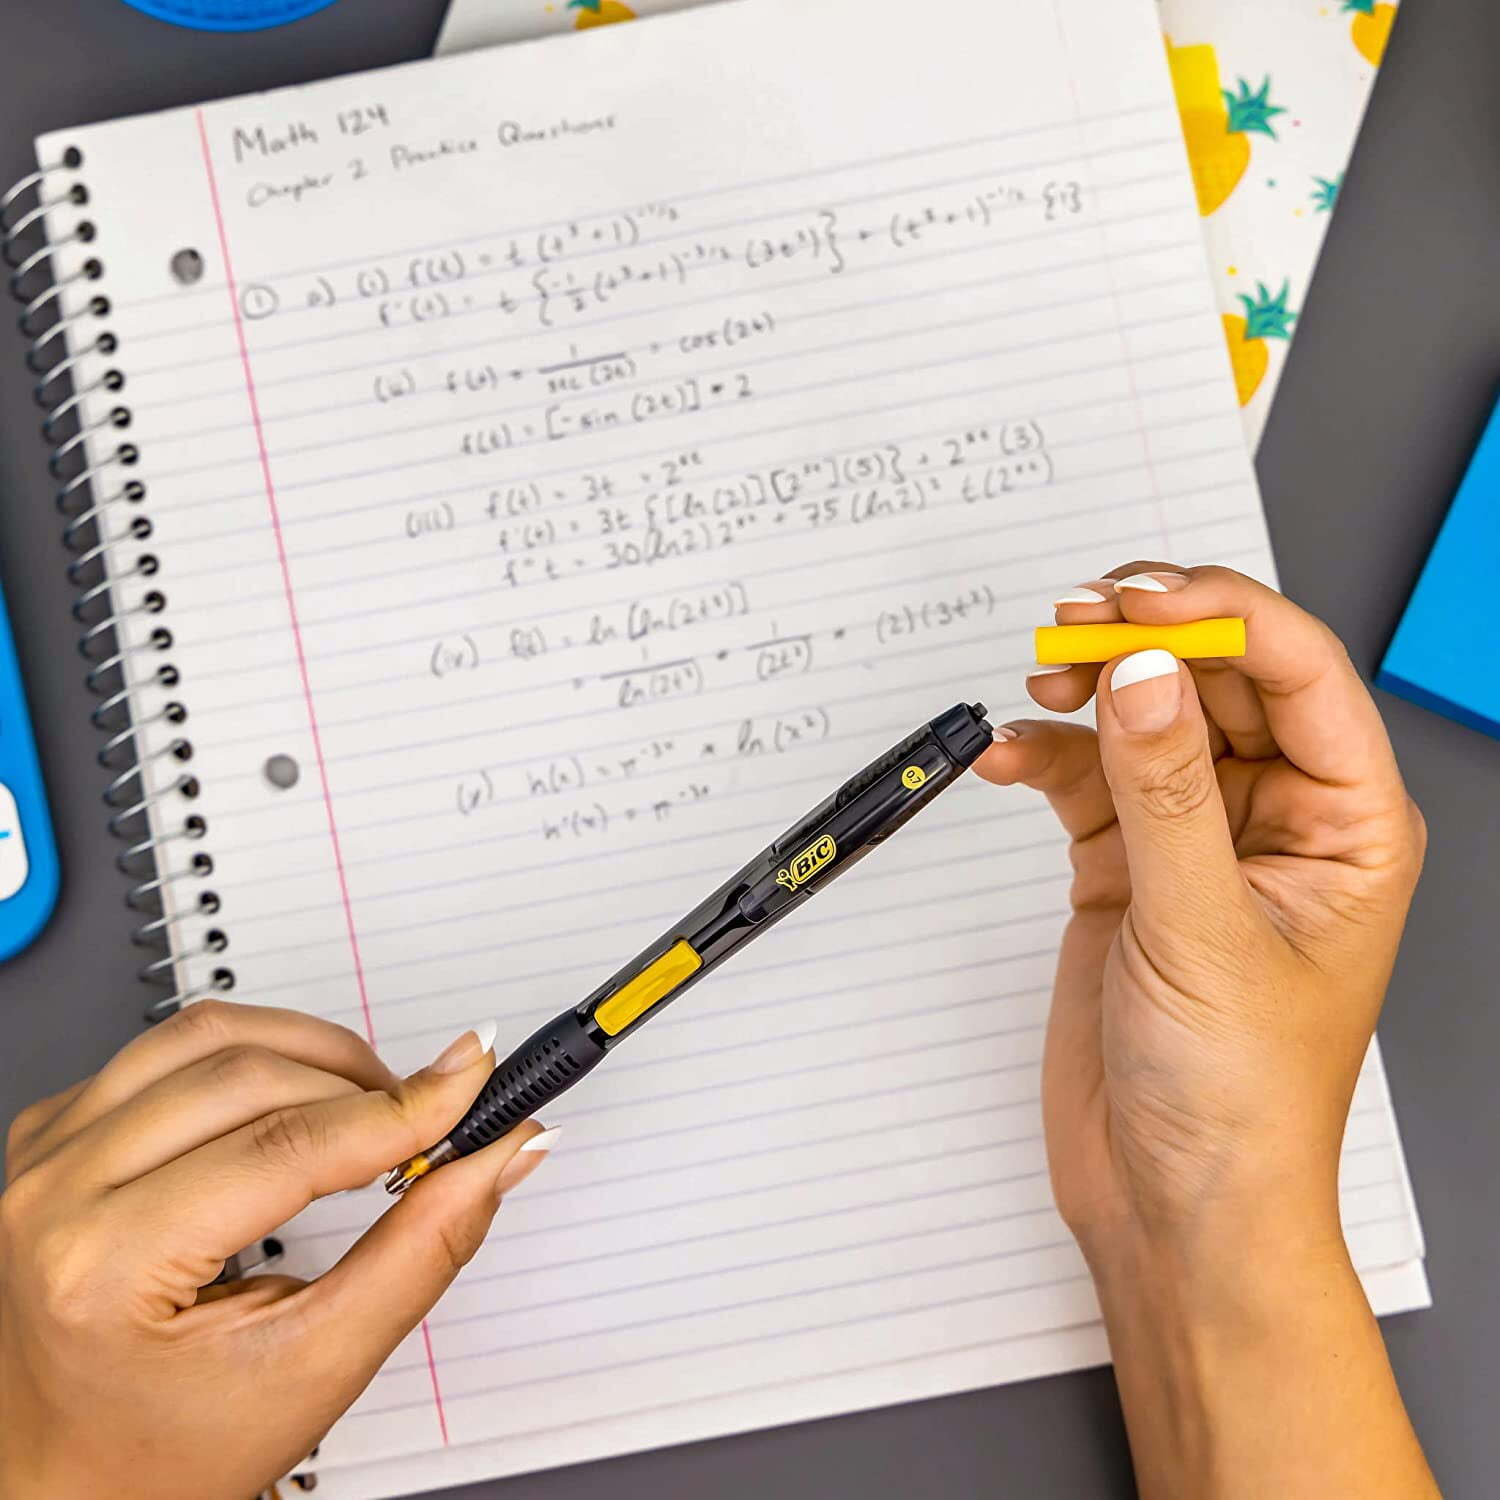 Math 124
Chapter 2 Practice Questions
① a) (i) f(t) = t (t³+1)^-1/2
f'(t) = t {-1/2 (t³+1)^-3/2 (3t²)} + (t³+1)^-1/2 {1}
(ii) f(t) = 1/sec(2t) = cos(2t)
f(t) = [-sin (2t)] • 2
(iii) f(t) = 3t
f'(t) = 3t {[ln(2)][2
](5)} + 2
(3)
f" t = 30(ln2)2
+ 75(ln2)² t(2
)
(iv) f(t) = ln[ln(2t³)]
= 1/ln(2t³) • 1/(2t³) • (2)(3t²)
(v) h(x) = π^-3x * ln(x²)
h'(x) = π^-3x
0.7
BIC